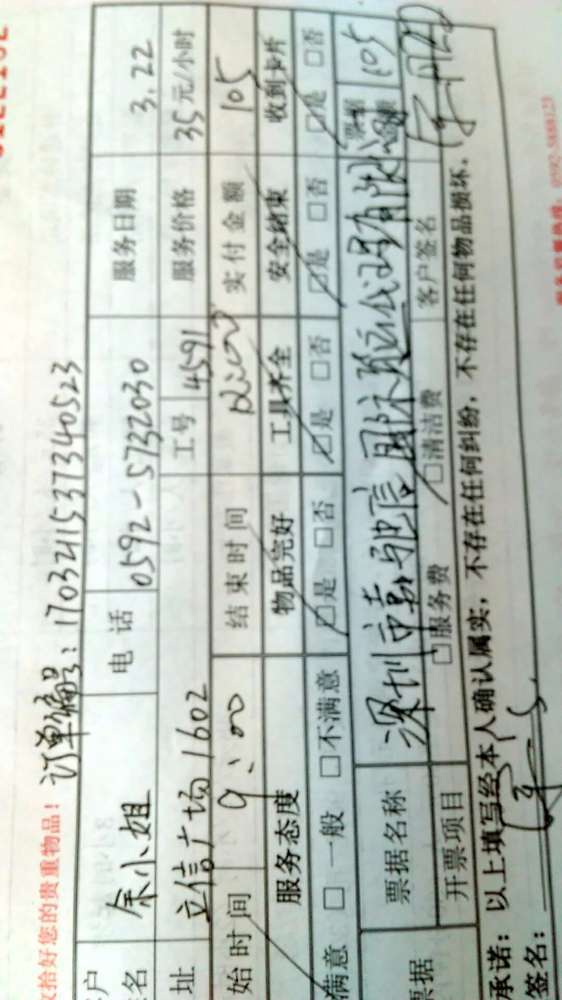 拾好您的贵重物品！ 订单编号：17032115373340523
户名 余小姐 电话 0592-5732030 服务日期 3.22
址 立信广场1602 工号 4591 服务价格 35元/小时
始时间 9:00 结束时间 12:00 实付金额 105
服务态度 物品完好 工具齐全 安全结束 收到卡片
满意 □一般 □不满意 □是 □否 □是 □否 □是 □否 □是 □否
票据 票据名称 深圳市 国际 代理有限 票据 105
开票项目 □服务费 □清洁费 客户签名
承诺：以上填写经本人确认属实，不存在任何纠纷，不存在任何物品损坏，
签名：
0592-5868123